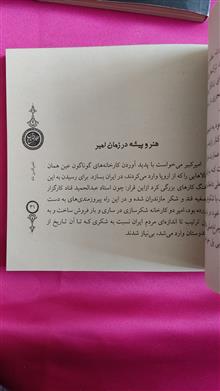 هنر و پیشه در زمان امیر
امیرکبیر می‌خواست با پدید آوردن کارخانه‌های گوناگون عین همان
کالاهایی را که از اروپا وارد می‌کردند، در ایران بسازد. برای رسیدن به این
کارهای بزرگی کرد ازاین قرار: چون استاد عبدالحمید قناد کارگزار
تصفیه قند و شکر مازندران شده و در این راه پیروزمندی‌های به دست
بود، امیر دو کارخانه شکرسازی در ساری و بارفروش ساخت و به
ترتیب تا اندازه‌ای مردم ایران نسبت به شکری که تا آن تاریخ از
هندوستان وارد می‌شد، بی‌نیاز شدند.
۳۹